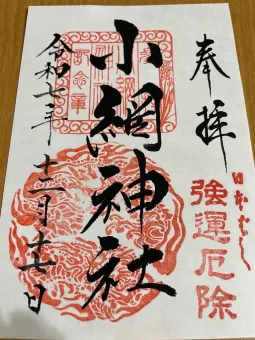 奉拝
日本ばし
強運厄除
小網神社
令和七年十二月十七日